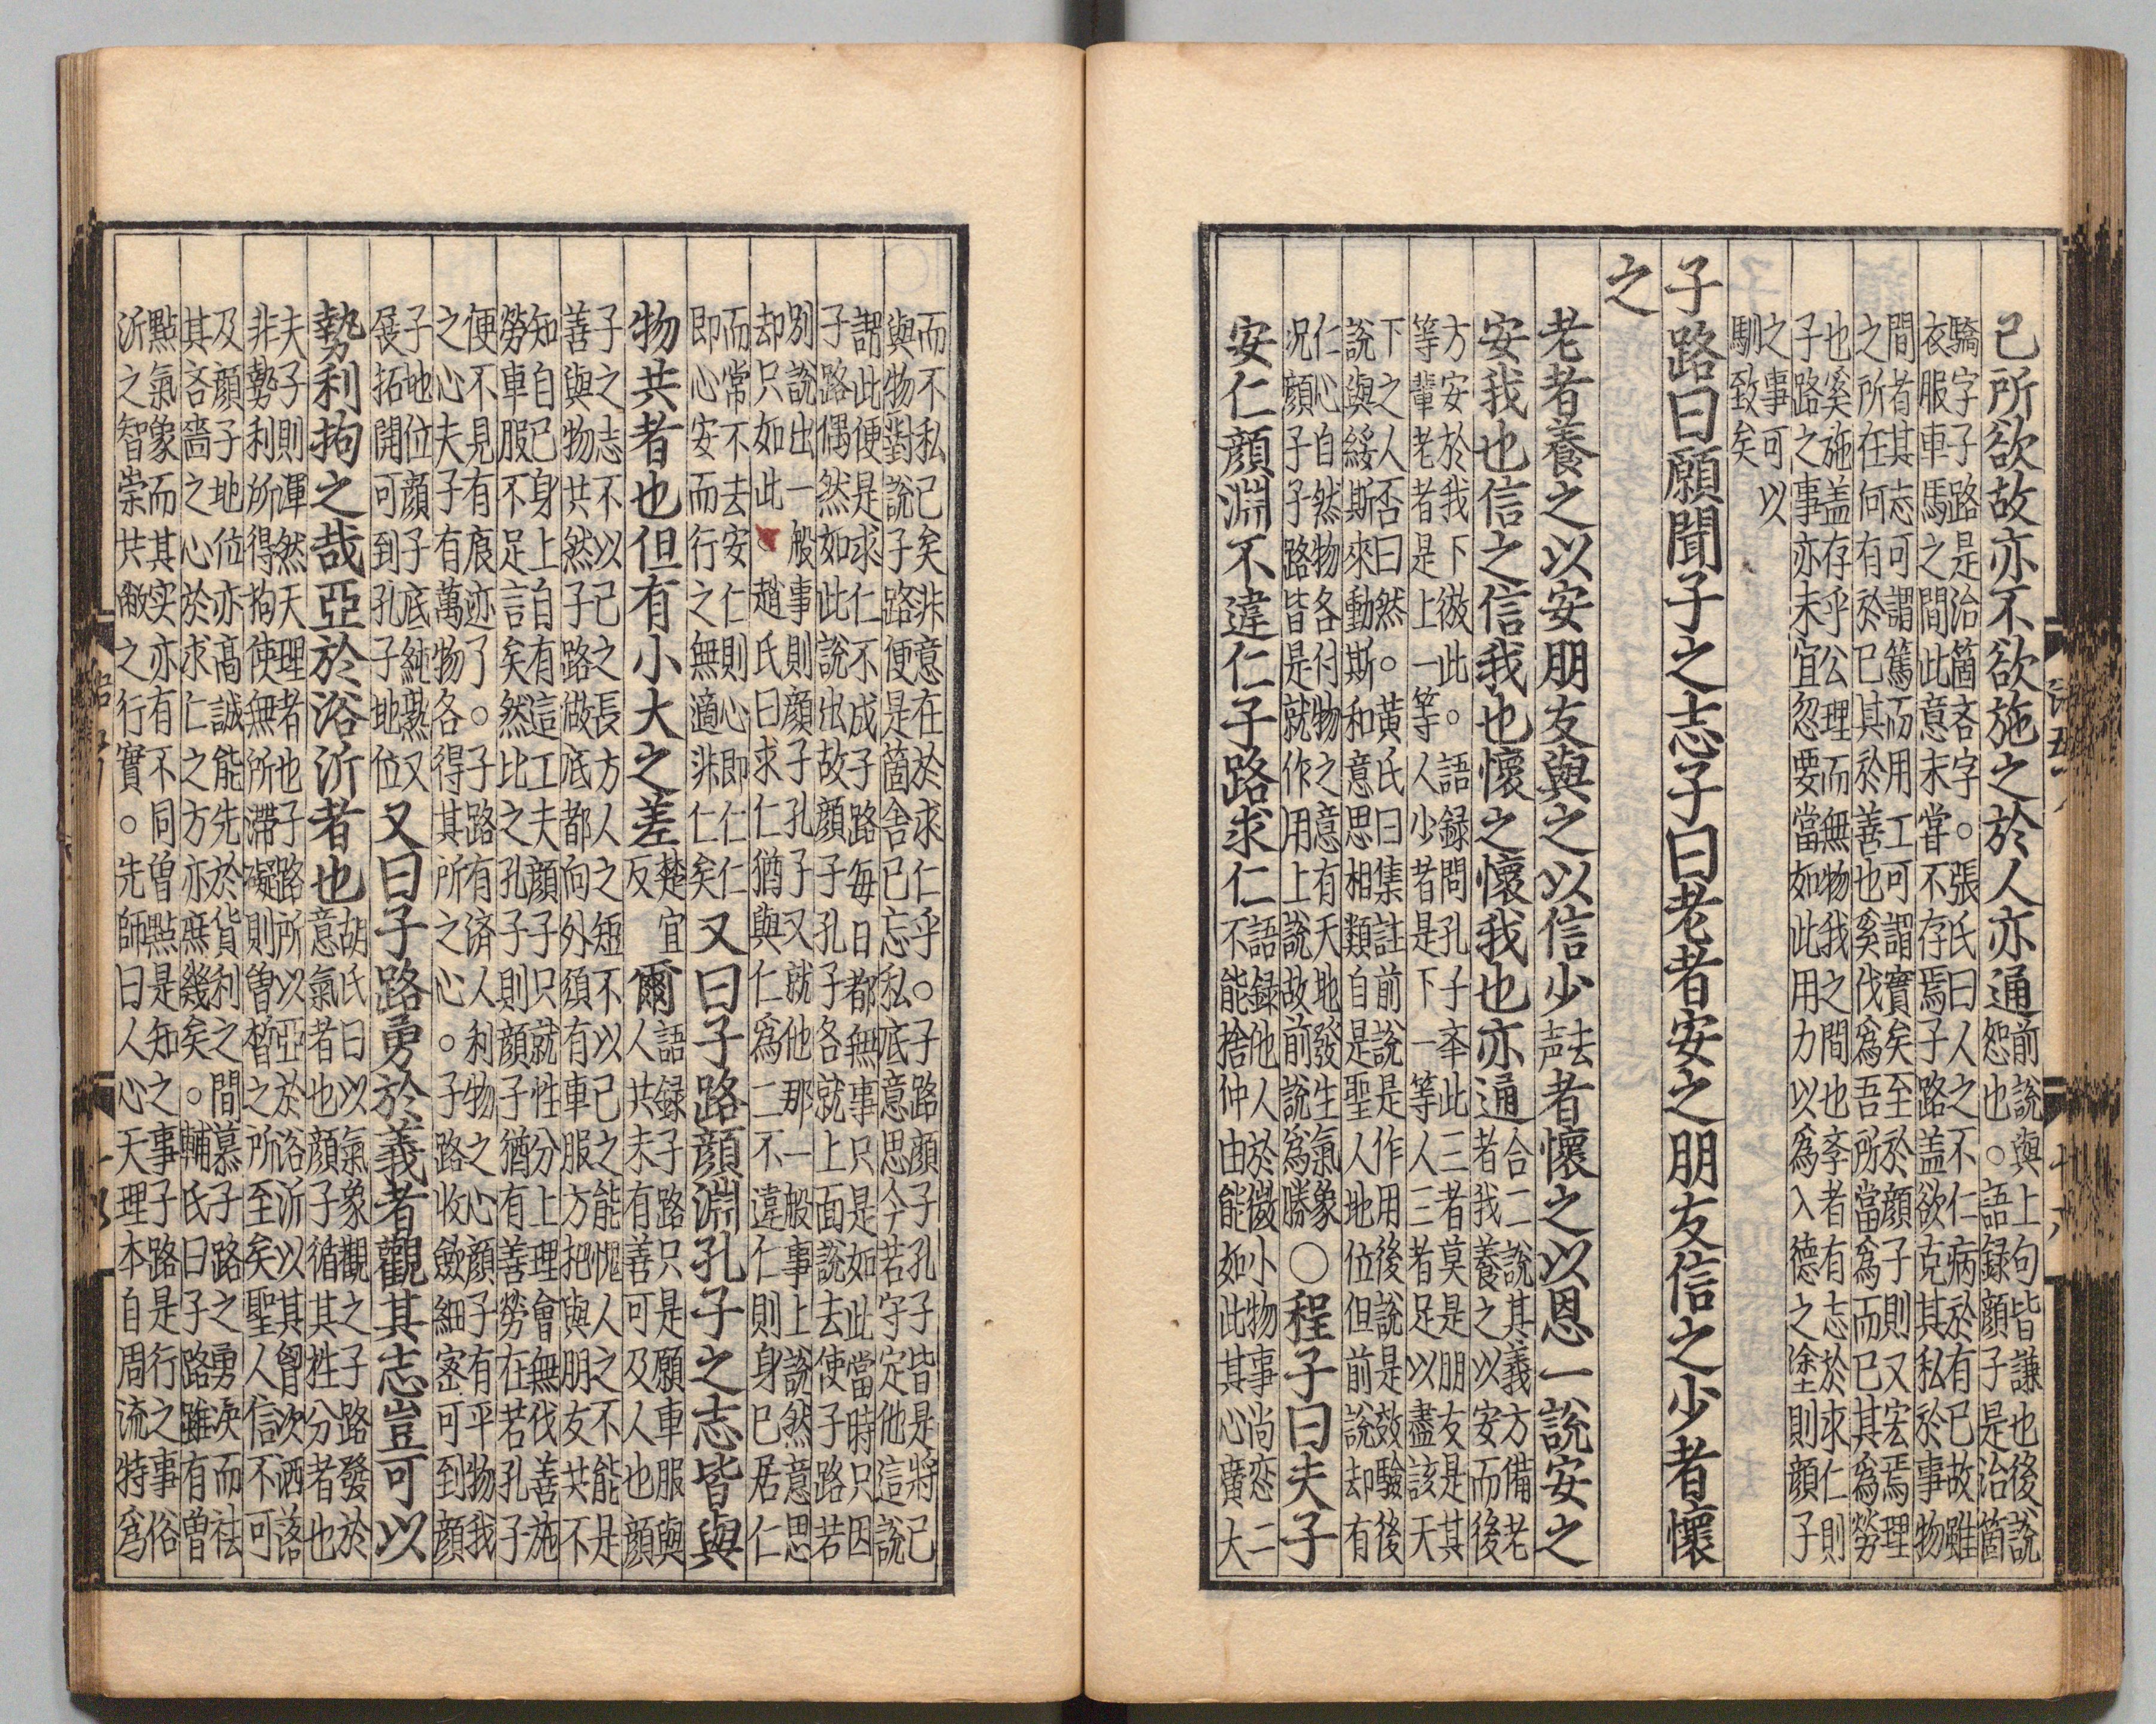 己所欲故亦不欲施之於人亦通
前說與上句皆謙也後說
恕也。語録顔子是治箇
驕字子路是治箇吝字。張氏曰人之不仁病於有已故雖
衣服車馬之間此意未甞不存焉子路盖欲克其私於事物
間者其志可謂篤而用工可謂實矣至於顔子則又宏焉理
之所在何有於已其於善也奚伐爲吾所當爲而已其爲勞
也奚施盖存乎公理而無物我之間也斈者有志於求仁則
子路之事亦未宜忽要當如此用力以爲入德之塗則顔子
之事可以
馴致矣
子路曰願聞子之志子曰老者安之朋友信之少者懷
之
老者養之以安朋友與之以信少去声者懷之以恩一說安之
安我也信之信我也懷之懷我也亦通
合二說其義方備老
者我養之以安而後
方安於我下倣此。語録問孔子夲此三者莫是朋友是其
等輩老者是上一等人少者是下一等人三者足以盡該天
下之人否曰然。黃氏曰集註前說是作用後說是效驗後
說與綏斯來動斯和意思相類自是聖人地位但前說却有
仁心自然物各付物之意有天地發生氣象
况顔子子路皆是就作用上說故前說爲勝
〇程子曰夫子
安仁顔淵不違仁子路求仁
語録他人於微小物事尚恋二
不能捨仲由能如此其心廣大
而不私已矣非意在於求仁乎。子路顔子孔子皆是將己
與物對說子路便是箇舍已忘私底意思今若守定他這說
謂此便是求仁不成子路每日都無事只是如此當時只因
子路偶然如此說出故顔子孔子各就上面說去使子路若
别說出一般事則顔子孔子又就他那一般事上說然意思
却只如此。趙氏曰求仁猶與仁爲二不違仁則身已居仁
而常不去安仁則心即仁仁
即心安而行之無適非仁矣
又曰子路顔淵孔子之志皆與
物共者也但有小大之差
楚宜
反
爾
語録子路只是願車服與
人共未有善可及人也顔
子之志不以已之長方人之短不以已之能愧人之不能是
善與物共然子路做底都向外須有車服方把與朋友共不
知自已身上自有這工夫顔子只就性分上理會無伐善施
勞車服不足言矣然比之孔子則顔子猶有善勞在若孔子
便不見有痕迹了。子路有済人利物之心顔子有平物我
之心夫子有萬物各得其所之心。子路收斂細密可到顔
子地位顔子底純熟又
展拓開可到孔子地位
又曰子路勇於義者觀其志豈可以
勢利拘之哉亞於浴沂者也
胡氏曰以氣象觀之子路發於
意氣者也顔子循其性分者也
夫子則渾然天理者也子路所以亞於浴沂以其胷次洒落
非勢利所得拘使無所滯礙則曽晳之所至矣聖人信不可
及顔子地位亦髙誠能先於貨利之間慕子路之勇決而袪
其吝嗇之心於求仁之方亦庶幾矣。輔氏曰子路雖有曽
點氣象而其实亦有不同曽點是知之事子路是行之事俗
沂之智崇共敝之行實。先師曰人心天理本自周流特爲